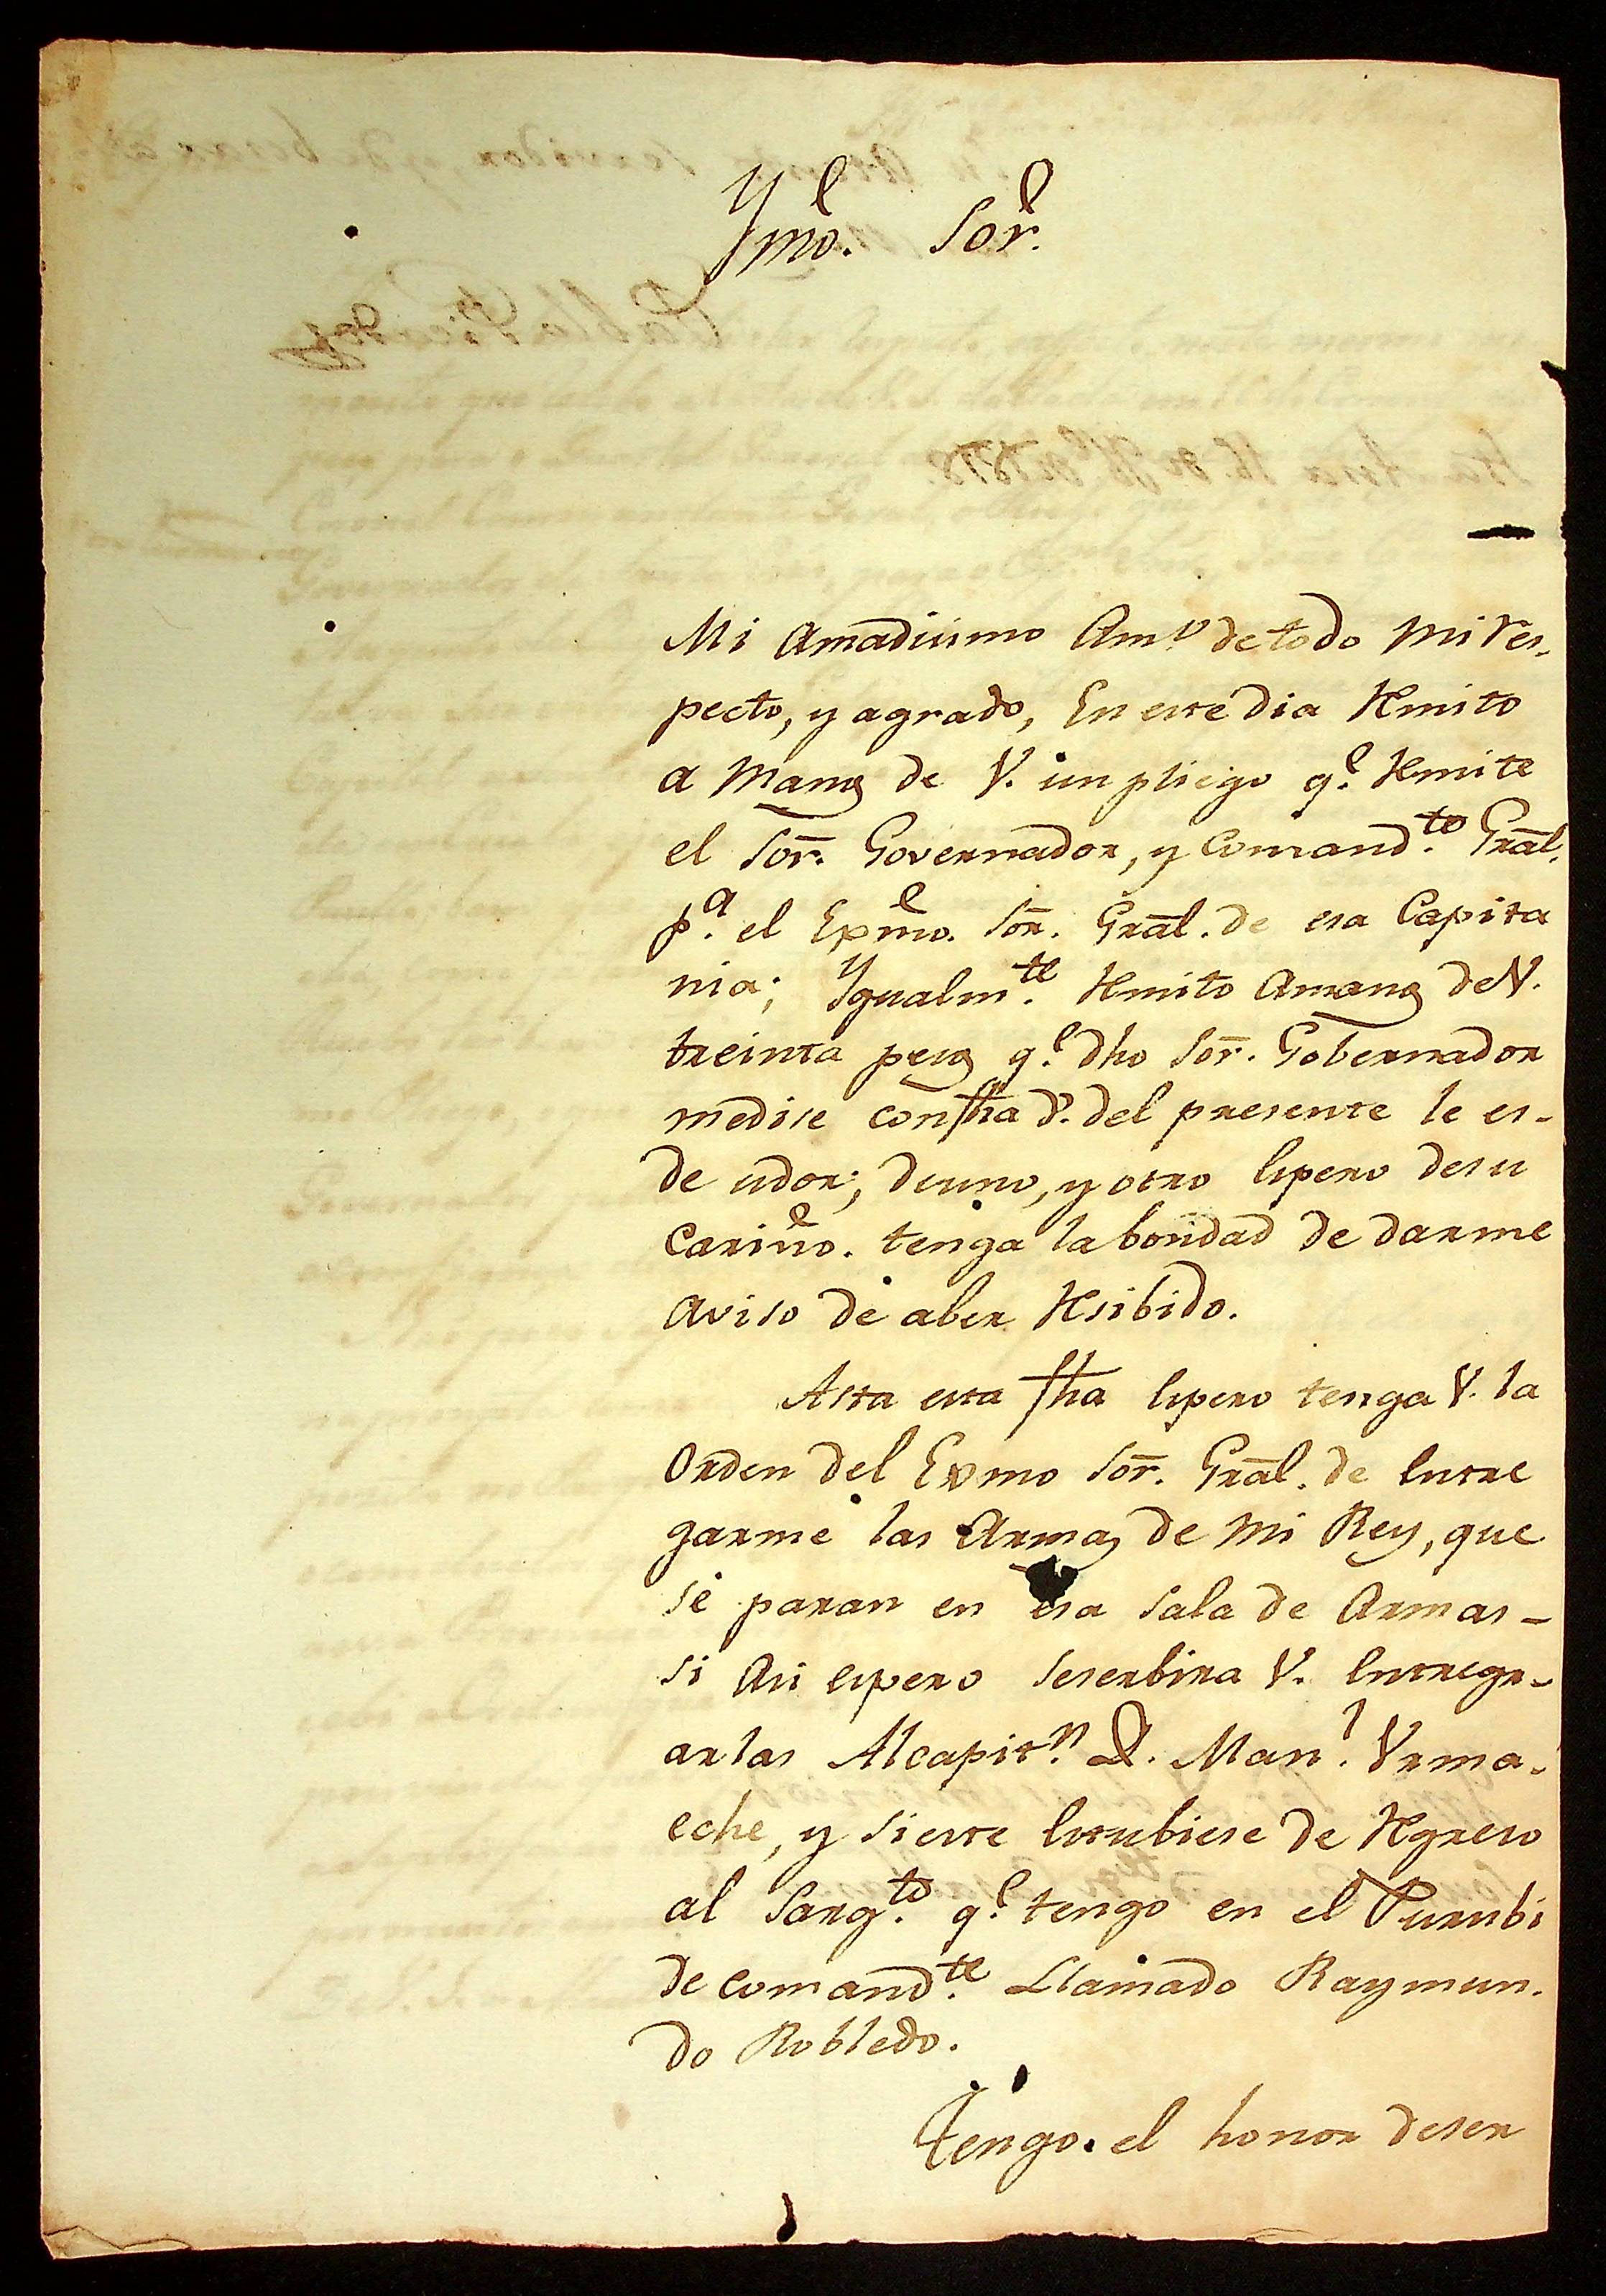 Yl̃mo. Sor̃.
Mi Amadisimo Am.º de todo mi res-
pecto, y agrado, En este dia Rmito
a manos de V. un pliego q.e Rmite
el Sor̃. Governador, y Comand.to Grãl.
p.a el Exmo. Sor̃. Grãl. de esa Capita
nia; Ygualm.te Rmito Amanos de V.
treinta pesos q.e dho Sor̃. Gobernador
medise con fha 8. del presente le es-
de udor; deuno, y otro espero desu
Cariño. tenga la bondad de darme
aviso de aber Rsibido.
Asta esta fha espero tenga V. la
Orden del Exmo Sor̃. Grãl. de entre
garme las Armas de mi Rey, que
se paran en esa Sala de Armas-
si Asi espero seserbira V. entregr-
arlas Alcapit.n D. Man.l Vrma-
eche, y sieste estubiese de Rgreso
al Sarg.to q.e tengo en el Purubi
de comand.te Llamado Raymun-
do Robledo.
Tengo el honor deser